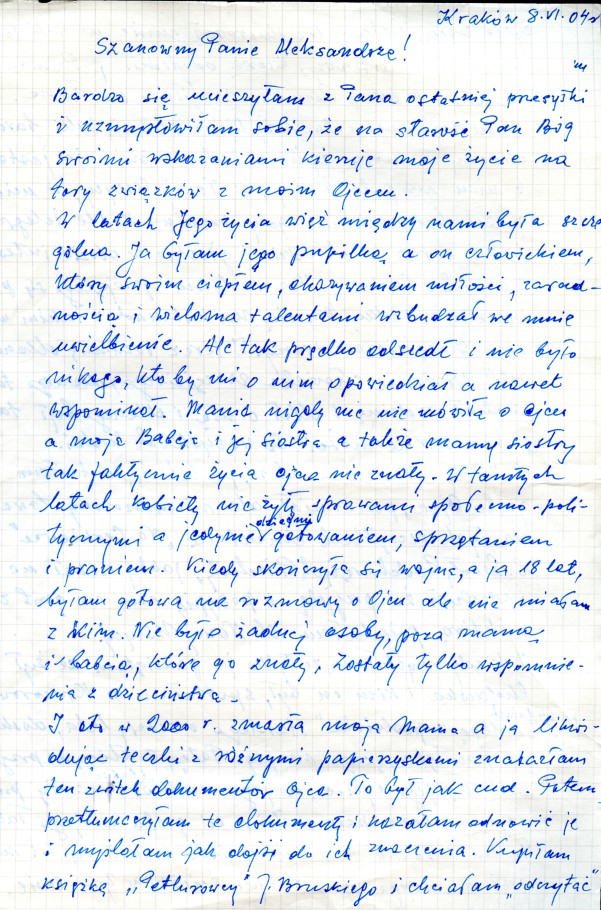 Kraków 8.VI.04r
Szanowny Panie Aleksandrze!
Bardzo się ucieszyłam z Pana ostatniej przesyłki
i uzmysłowiłam sobie, że na starość Pan Bóg
swoimi wskazaniami kieruje moje życie na
tory związków z moim Ojcem.
W latach Jego życia więź między nami była szcze
gólna. Ja byłam jego pupilką, a on człowiekiem,
który swoim ciepłem, okazywaniem miłości, zarad-
nością i wieloma talentami wzbudzał we mnie
uwielbienie. Ale tak prędko odszedł i nie było
nikogo, kto by mi o nim opowiedział a nawet
wspominał. Mama nigdy nic nie mówiła o Ojcu
a moja Babcja i jej siostra a także mamy siostry
tak faktycznie życia ojca nie znały. W tamtych
latach kobiety nie żyły sprawami społeczno-poli-
tycznymi a jedynie dziećmi gotowaniem, sprzątaniem
i praniem. Kiedy skończyła się wojna, a ja 18 lat,
byłam gotowa na rozmowy o Ojcu ale nie miałam
z kim. Nie było żadnej osoby, poza mamą
i babcią, które go znały. Zostały tylko wspomnie-
nia z dzieciństwa.
I oto w 2000 r. zmarła moja Mama a ja likwi-
dując teczki z różnymi papierzyskami znalazłam
ten zwitek dokumentów Ojca. To był jak cud. Potem
przetłumaczyłam te dokumenty i kazałam odnowić je
i myślałam jak dojść do ich znaczenia. Kupiłam
książkę „Petlurowcy" J. Bruskiego i chciałam „odczytać"